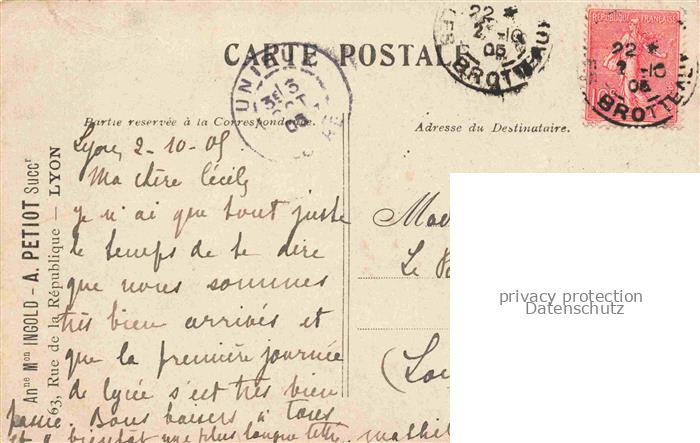 CARTE POSTALE
Partie reservée à la Correspondance.
Adresse du Destinataire.
Anne Mon INGOLD - A. PETIOT Succr
63, Rue de la République — LYON
REPUBLIQUE FRANÇAISE
22 *
2 -10
05
BROTTEAUX
22 *
2 -10
05
BROTTEAUX
UNI
3E
13
OCT
05
Lyon, 2-10-05
Ma chère Cécile
je n'ai que tout juste
le temps de te dire
que nous sommes
très bien arrivés et
que la première journée
de lycée s'est très bien
passée. Bons baisers à tous
et à bientôt une plus longue lettre
Le
(
privacy protection
Datenschutz